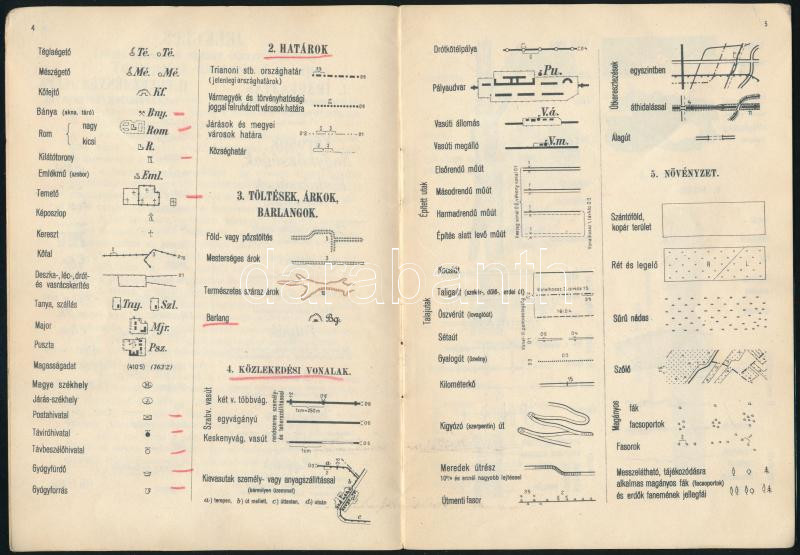 4
Téglaégető Té. Té.
Mészégető Mé. Mé.
Kőfejtő Kf.
Bánya (akna, táró) Bny.
Rom nagy Rom
kicsi R.
Kilátótorony
Emlékmű (szobor) Eml.
Temető
Képoszlop
Kereszt
Kőfal
Deszka-, léc-, drót-
és vasrácskerítés
Tanya, szállás Tny. Szl.
Major Mjr.
Puszta Psz.
Magasságadat (410·5) (163·2)
Megye székhely
Járás-székhely
Postahivatal
Távíróhivatal
Távbeszélőhivatal
Gyógyfürdő
Gyógyforrás
2. HATÁROK
Trianoni stb. országhatár
(jelenlegi országhatárok)
Vármegyék és törvényhatósági
joggal felruházott városok határa
Járások és megyei
városok határa
Községhatár
3. TÖLTÉSEK, ÁRKOK,
BARLANGOK.
Föld- vagy pózstöltés
Mesterséges árok
Természetes száraz árok
Barlang Bg.
4. KÖZLEKEDÉSI VONALAK.
Szabv. vasút
két v. többvág.
1cm=250m
egyvágányú
Keskenyvág. vasút
1cm
rendszeres személy-
és teherszállítással
Kisvasutak személy- vagy anyagszállítással
(bármilyen üzemmel)
a) terepen, b) út mellett, c) úttesten, d) utcán
5
Drótkötélpálya
Pályaudvar Pu.
Vasúti állomás V.á.
Vasúti megálló V.m.
Épített utak
Elsőrendű műút
Másodrendű műút
Harmadrendű műút
Építés alatt levő műút
Talajutak
Kocsiút
Taligaút (szekér-, dűlő-, erdei út)
Öszvérút (lovaglóút)
Sétaút
Gyalogút (ösvény)
Kilométerkő
Kígyózó (szerpentin) út
Meredek útrész
10% és ennél nagyobb lejtéssel
Útmenti fasor
Útkereszteződések
egyszintben
áthidalással
Alagút
5. NÖVÉNYZET.
Szántóföld,
kopár terület
Rét és legelő R L
Sűrű nádas
Szőlő
Magányos
fák
facsoportok
Fasorok
Messzelátható, tájékozódásra
alkalmas magányos fák (facsoportok)
és erdők fanemének jellegfái
darabanth